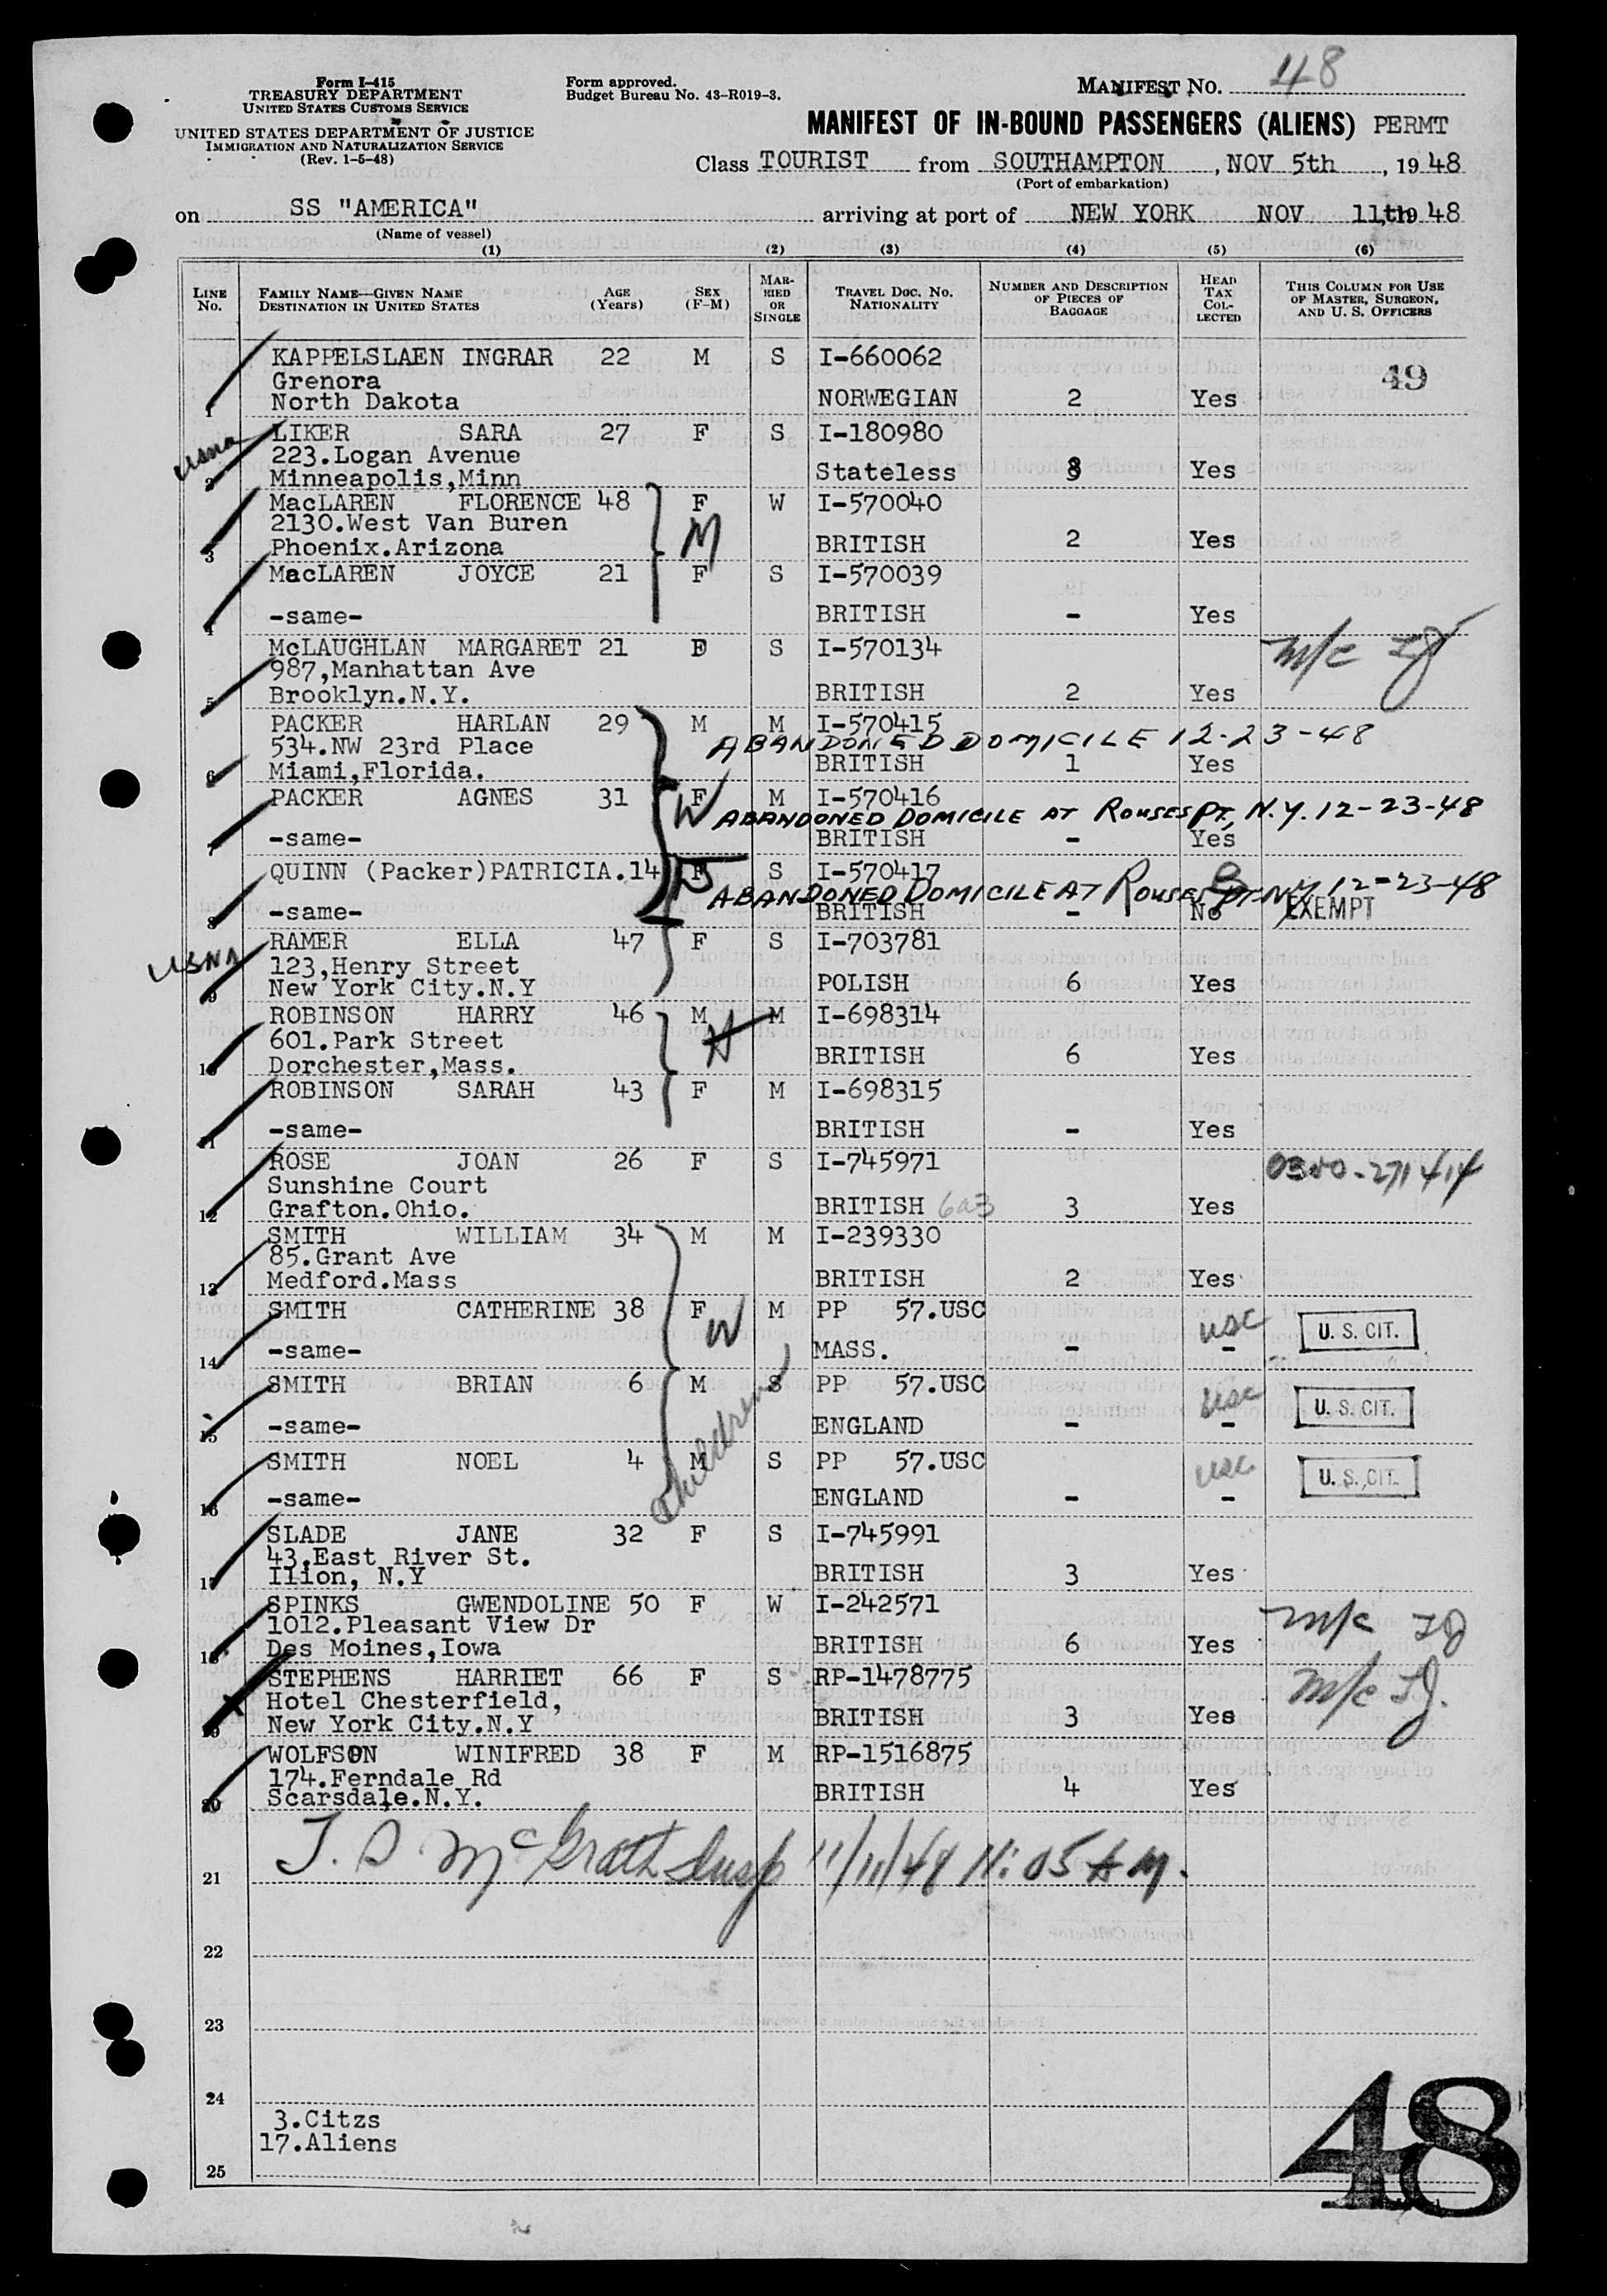 Form I-415
TREASURY DEPARTMENT
UNITED STATES CUSTOMS SERVICE
UNITED STATES DEPARTMENT OF JUSTICE
IMMIGRATION AND NATURALIZATION SERVICE
(Rev. 1-5-48)
Form approved.
Budget Bureau No. 43-R019-3.
MANIFEST NO. 48
MANIFEST OF IN-BOUND PASSENGERS (ALIENS) PERMT
Class TOURIST from SOUTHAMPTON, NOV 5th, 1948
(Port of embarkation)
on SS "AMERICA" arriving at port of NEW YORK NOV 11th 1948
(Name of vessel)
(1) (2) (3) (4) (5) (6)
LINE NO. FAMILY NAME—GIVEN NAME DESTINATION IN UNITED STATES AGE (Years) SEX (F-M) MARRIED OR SINGLE TRAVEL DOC. NO. NATIONALITY NUMBER AND DESCRIPTION OF PIECES OF BAGGAGE HEAD TAX COLLECTED THIS COLUMN FOR USE OF MASTER, SURGEON, AND U. S. OFFICERS
KAPPELSLAEN INGRAR 22 M S I-660062
Grenora 49
1 North Dakota NORWEGIAN 2 Yes
usna LIKER SARA 27 F S I-180980
223.Logan Avenue
2 Minneapolis,Minn Stateless 8 Yes
MacLAREN FLORENCE 48 F W I-570040
2130.West Van Buren M
3 Phoenix.Arizona BRITISH 2 Yes
MacLAREN JOYCE 21 F S I-570039
4 -same- BRITISH - Yes
McLAUGHLAN MARGARET 21 F S I-570134 m/c
987,Manhattan Ave
5 Brooklyn.N.Y. BRITISH 2 Yes
PACKER HARLAN 29 M M I-570415
534.NW 23rd Place ABANDONED DOMICILE 12-23-48
6 Miami,Florida. BRITISH 1 Yes
PACKER AGNES 31 F M I-570416
W ABANDONED DOMICILE AT ROUSES PT, N.Y. 12-23-48
7 -same- BRITISH - Yes
QUINN (Packer)PATRICIA.14 F S I-570417
ABANDONED DOMICILE AT ROUSES PT NY 12-23-48
8 -same- BRITISH - No EXEMPT
USNA RAMER ELLA 47 F S I-703781
123,Henry Street
9 New York City.N.Y POLISH 6 Yes
ROBINSON HARRY 46 M M I-698314
601.Park Street H
10 Dorchester,Mass. BRITISH 6 Yes
ROBINSON SARAH 43 F M I-698315
11 -same- BRITISH - Yes
ROSE JOAN 26 F S I-745971 0300-271414
Sunshine Court
12 Grafton.Ohio. BRITISH 6a3 3 Yes
SMITH WILLIAM 34 M M I-239330
85.Grant Ave
13 Medford.Mass BRITISH 2 Yes
SMITH CATHERINE 38 F M PP 57.USC usc U. S. CIT.
W
14 -same- MASS. - -
SMITH BRIAN 6 M S PP 57.USC usc U. S. CIT.
children
15 -same- ENGLAND - -
SMITH NOEL 4 M S PP 57.USC usc U. S. CIT.
16 -same- ENGLAND - -
SLADE JANE 32 F S I-745991
43,East River St.
17 Ilion, N.Y BRITISH 3 Yes
SPINKS GWENDOLINE 50 F W I-242571
1012.Pleasant View Dr m/c
18 Des Moines,Iowa BRITISH 6 Yes
STEPHENS HARRIET 66 F S RP-1478775
Hotel Chesterfield, m/c
19 New York City.N.Y BRITISH 3 Yes
WOLFSON WINIFRED 38 F M RP-1516875
174.Ferndale Rd
20 Scarsdale.N.Y. BRITISH 4 Yes
21 T. S. McGrath Insp 11/11/48 11:05 AM.
22
23
24
3.Citzs
17.Aliens
25
48